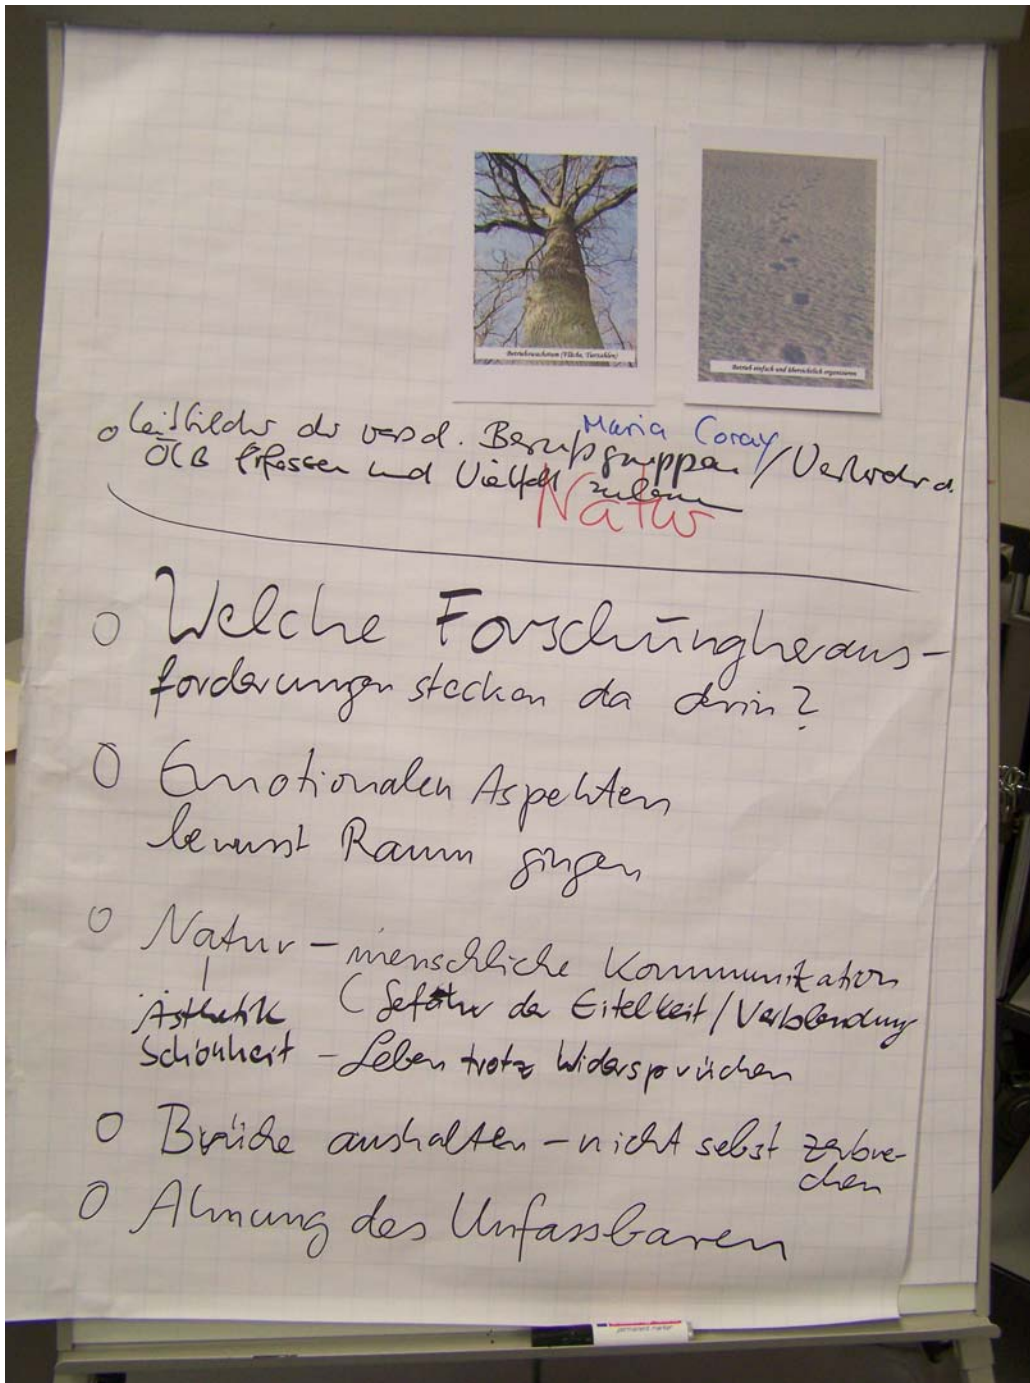 Betriebswachstum (Fläche, Tierzahlen)
Betrieb einfach und übersichtlich organisieren
Maria Coray
o Leitbilder der versch. Berufsgruppen / Verbände d.
ÖLB erfassen und Vielfalt
Natur
o Welche Forschungheraus-
forderungen stecken da drin?
o Emotionalen Aspekten
bewusst Raum
o Natur – menschliche Kommunikation
Ästhetik ( Gefahr der Eitelkeit / Verblendung
Schönheit – Leben trotz Widersprüchen
o Brüche aushalten – nicht selbst zerbre-
chen
o Ahnung des Unfassbaren
permanent marker